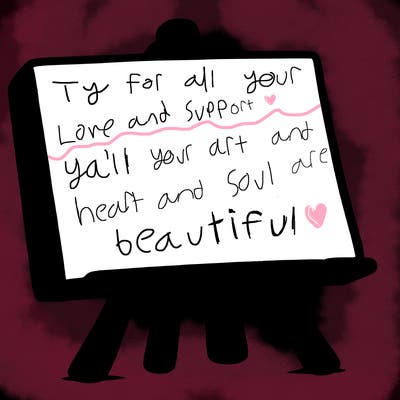 Ty for all your
Love and support
ya'll your art and
heart and soul are
beautiful